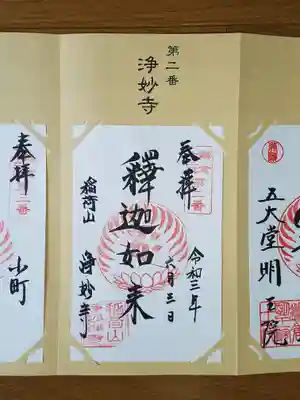 第二番
浄妙寺
奉拝
釋迦如来
稲荷山
浄妙寺
令和三年
六月三日
五大堂明王院
奉拝
小町